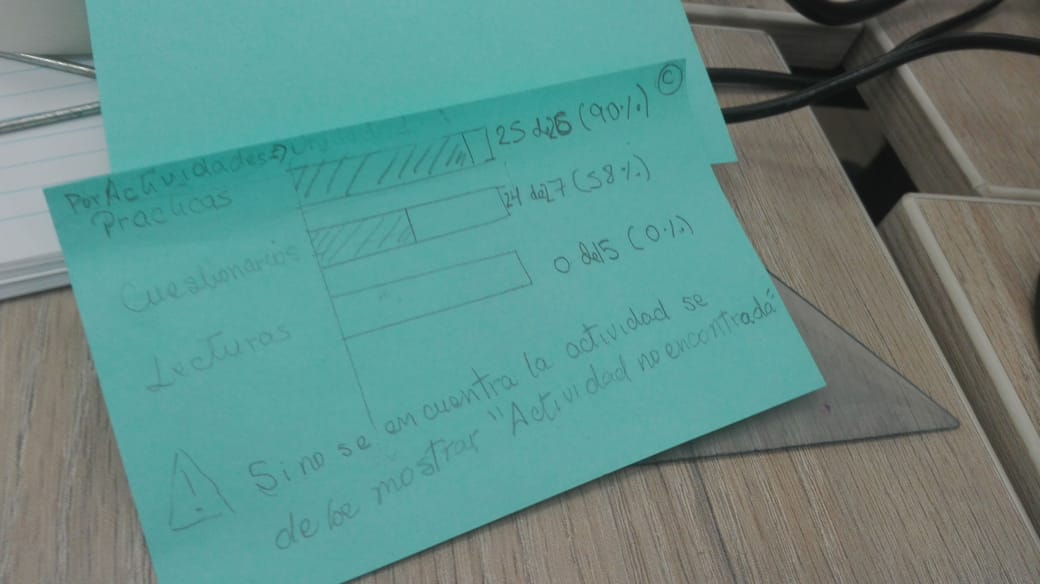 ©
Por Actividades
Practicas 25 de 26 (90%)
Cuestionarios 24 de 27 (58%)
Lecturas 0 de 15 (0%)
! Si no se encuentra la actividad se
debe mostrar "Actividad no encontrada"